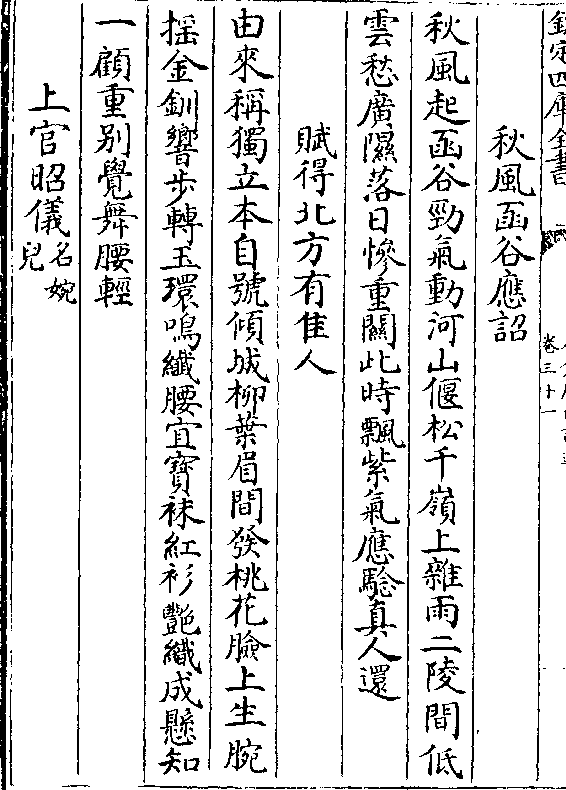 欽定四庫全書
卷三十一
秋風函谷應詔
秋風起函谷勁氣動河山偃松千嶺上雜雨二陵間低
雲愁廣隰落日慘重關此時飄紫氣應驗真人還
賦得北方有佳人
由來稱獨立本自號傾城柳葉眉間發桃花臉上生腕
搖金釧響步轉玉環鳴纖腰宜寶袜紅衫艷織成懸知
一顧重别覺舞腰輕
上官昭儀名婉兒